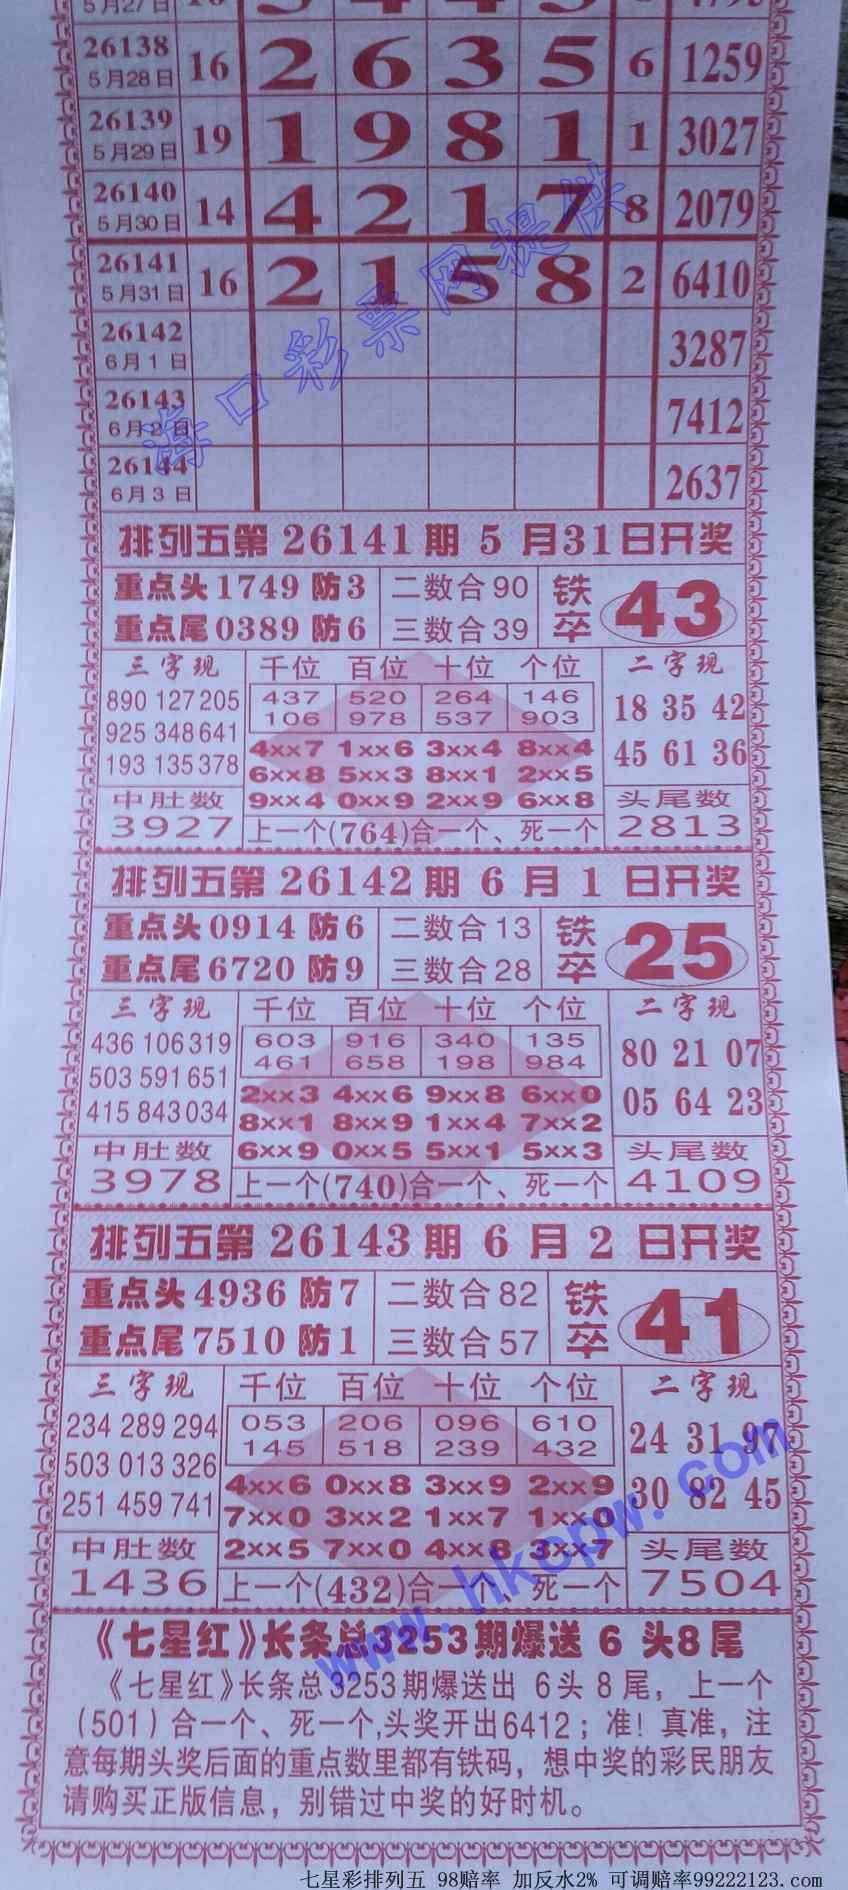 5月27日
26138 5月28日 16 2 6 3 5 6 1259
26139 5月29日 19 1 9 8 1 1 3027
26140 5月30日 14 4 2 1 7 8 2079
26141 5月31日 16 2 1 5 8 2 6410
26142 6月1日 3287
26143 6月2日 7412
26144 6月3日 2637
海口彩票网提供
排列五第 26141 期 5 月31日开奖
重点头1749 防3 二数合90 铁卒 43
重点尾0389 防6 三数合39
三字现 千位 百位 十位 个位 二字现
890 127 205 437 520 264 146 18 35 42
925 348 641 106 978 537 903
193 135 378 4××7 1××6 3××4 8××4 45 61 36
6××8 5××3 8××1 2××5
中肚数 9××4 0××9 2××9 6××8 头尾数
3927 上一个(764)合一个、死一个 2813
排列五第 26142 期 6 月 1 日开奖
重点头0914 防6 二数合13 铁卒 25
重点尾6720 防9 三数合28
三字现 千位 百位 十位 个位 二字现
436 106 319 603 916 340 135 80 21 07
503 591 651 461 658 198 984
415 843 034 2××3 4××6 9××8 6××0 05 64 23
8××1 8××9 1××4 7××2
中肚数 6××9 0××5 5××1 5××3 头尾数
3978 上一个(740)合一个、死一个 4109
排列五第 26143 期 6 月 2 日开奖
重点头4936 防7 二数合82 铁卒 41
重点尾7510 防1 三数合57
三字现 千位 百位 十位 个位 二字现
234 289 294 053 206 096 610 24 31 97
503 013 326 145 518 239 432
251 459 741 4××6 0××8 3××9 2××9 30 82 45
7××0 3××2 1××7 1××0
中肚数 2××5 7××0 4××8 3××7 头尾数
1436 上一个(432)合一个、死一个 7504
www.hkcpw.com
《七星红》长条总3253期爆送 6 头8尾
《七星红》长条总3253期爆送出 6头 8 尾，上一个
(501) 合一个、死一个,头奖开出6412；准！真准，注
意每期头奖后面的重点数里都有铁码，想中奖的彩民朋友
请购买正版信息，别错过中奖的好时机。
七星彩排列五 98赔率 加反水2% 可调赔率99222123.com